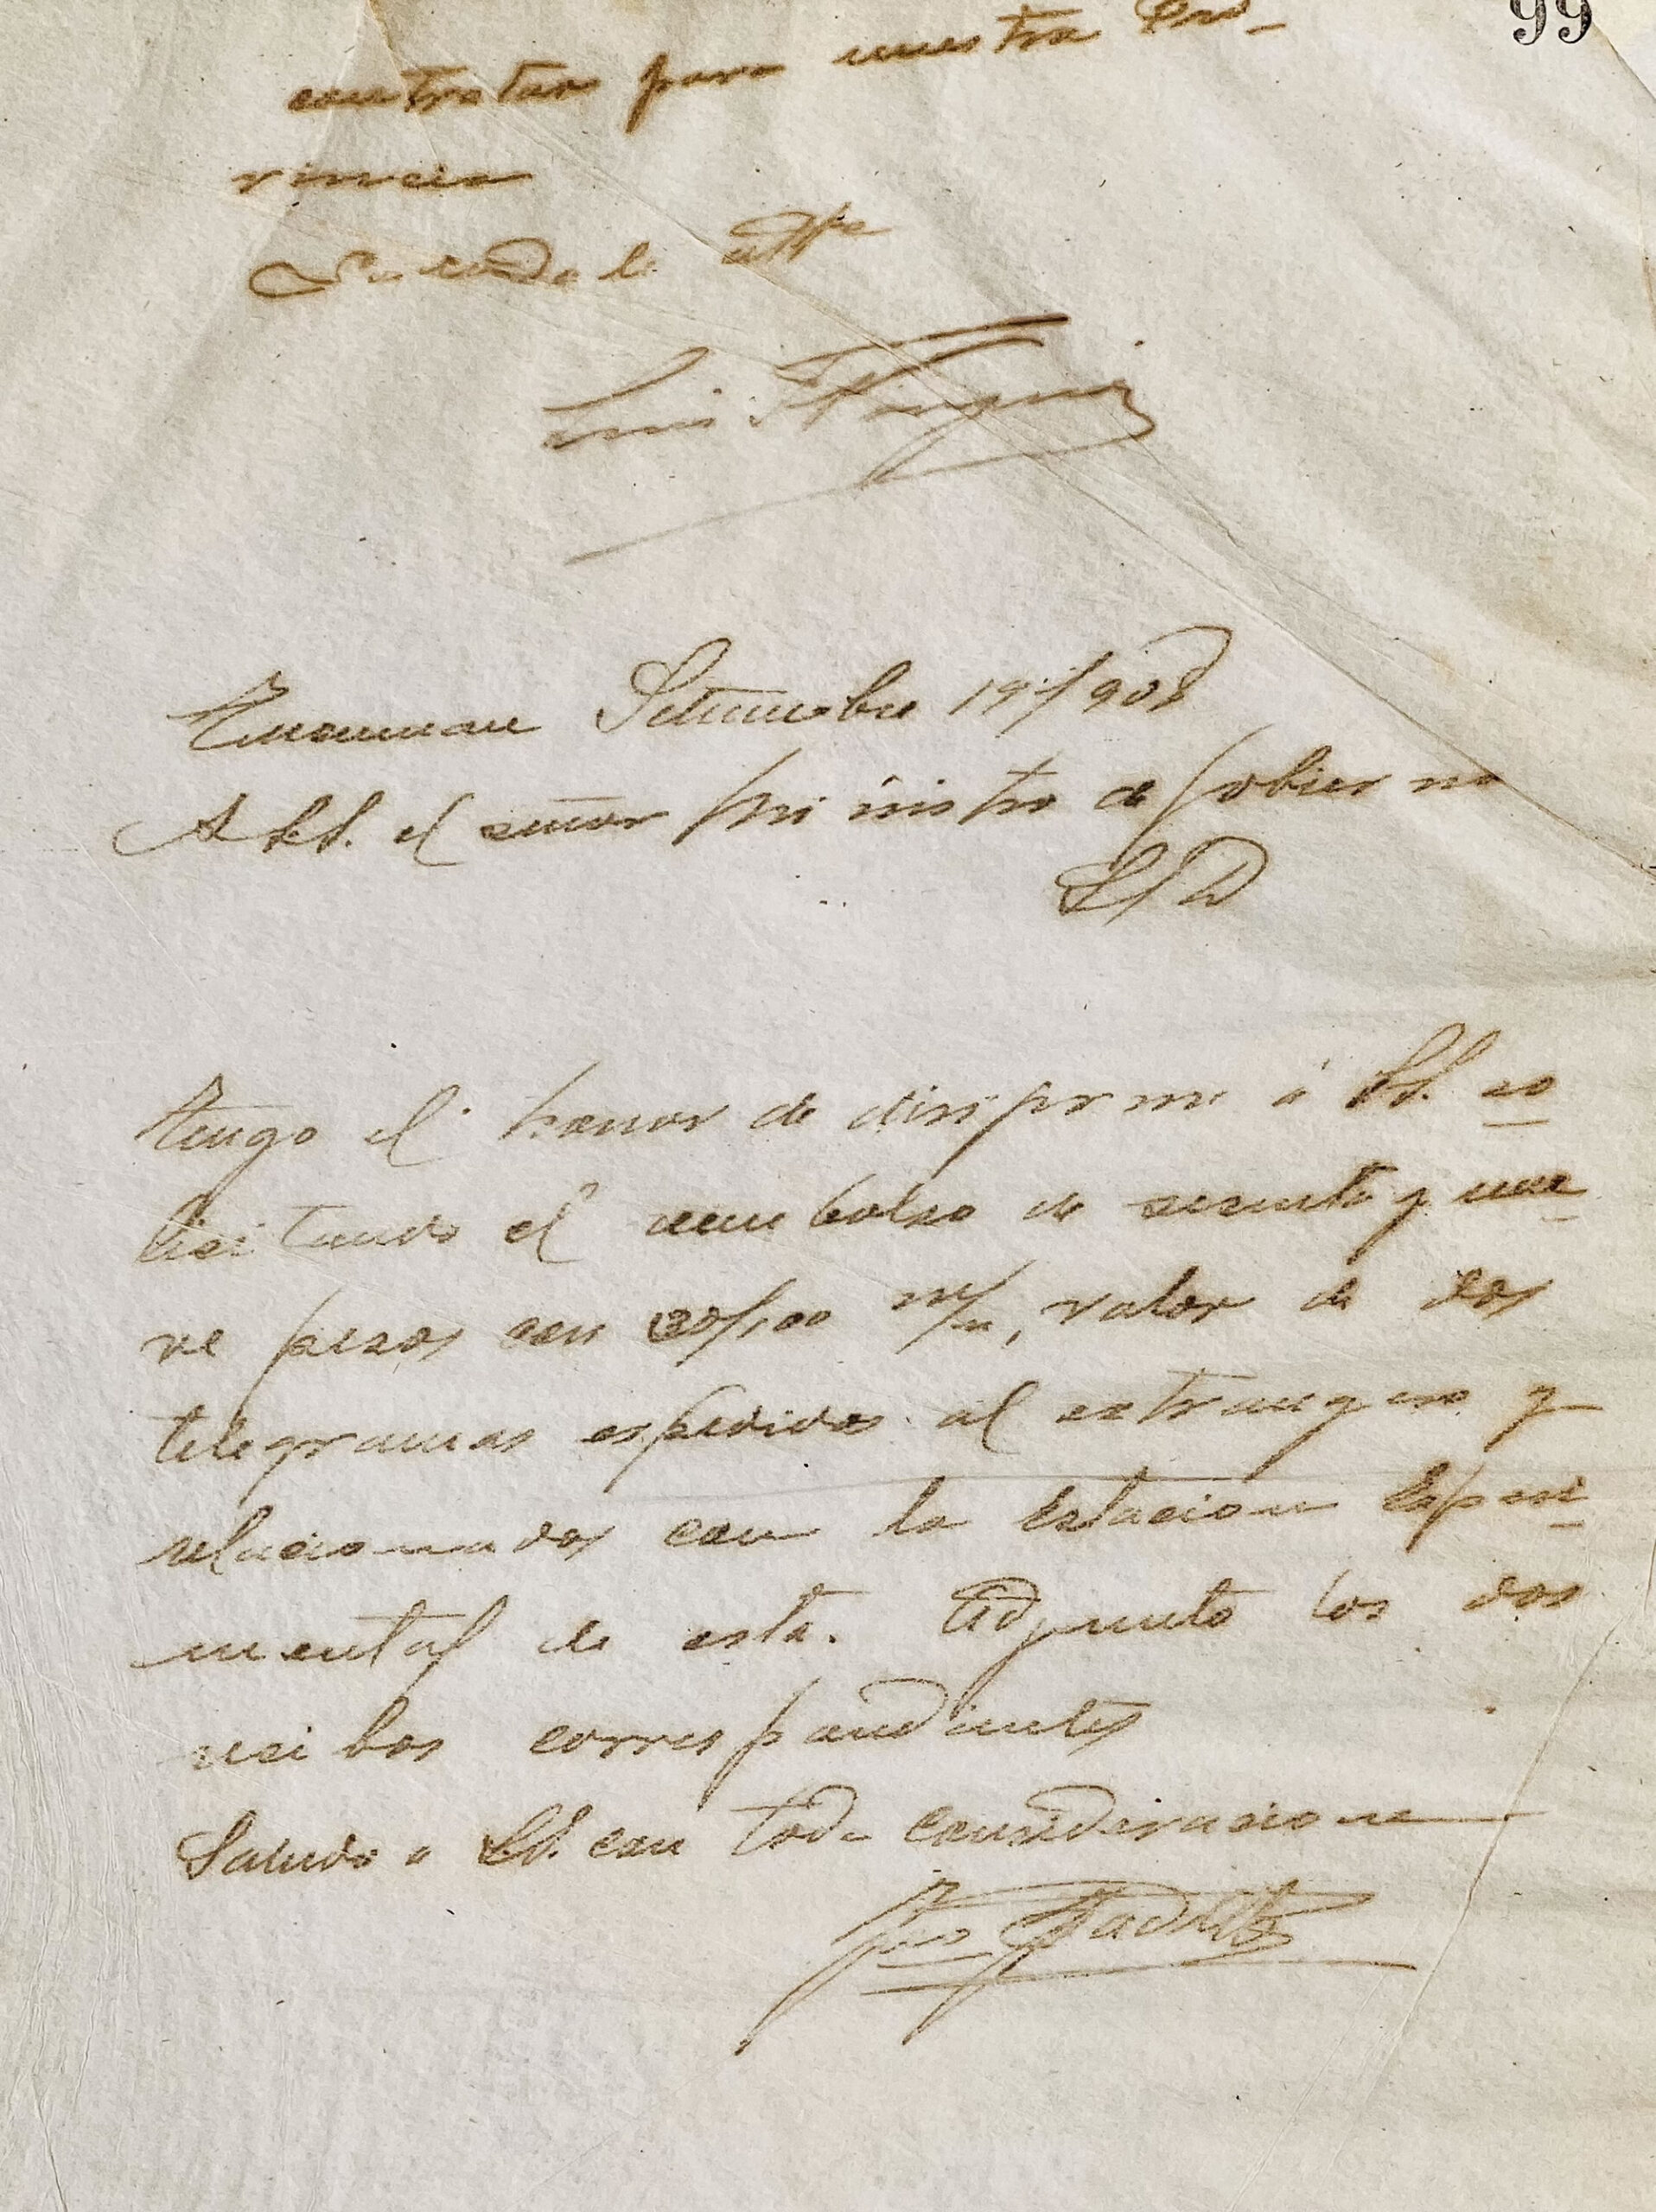 99
contratar para nuestra Pro-
vincia
Saluda le atte
Luis F
Tucuman Setiembre 19/908
A S.S. el señor Ministro de Gobierno
S/D
Tengo el honor de dirijirme á S.S. so
licitando el reembolso de sesenta y nue
ve pesos con 30/100 m/n, valor de dos
telegramas espedidos al extrangero y
relacionados con la Estacion Esperi
mental de esta. Adjunto los dos
recibos correspondientes
Saludo a S.S. con toda consideracion